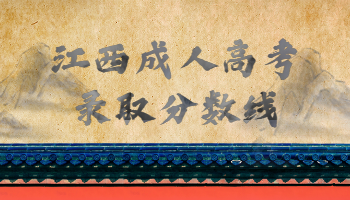 江西成人高考
录取分数线